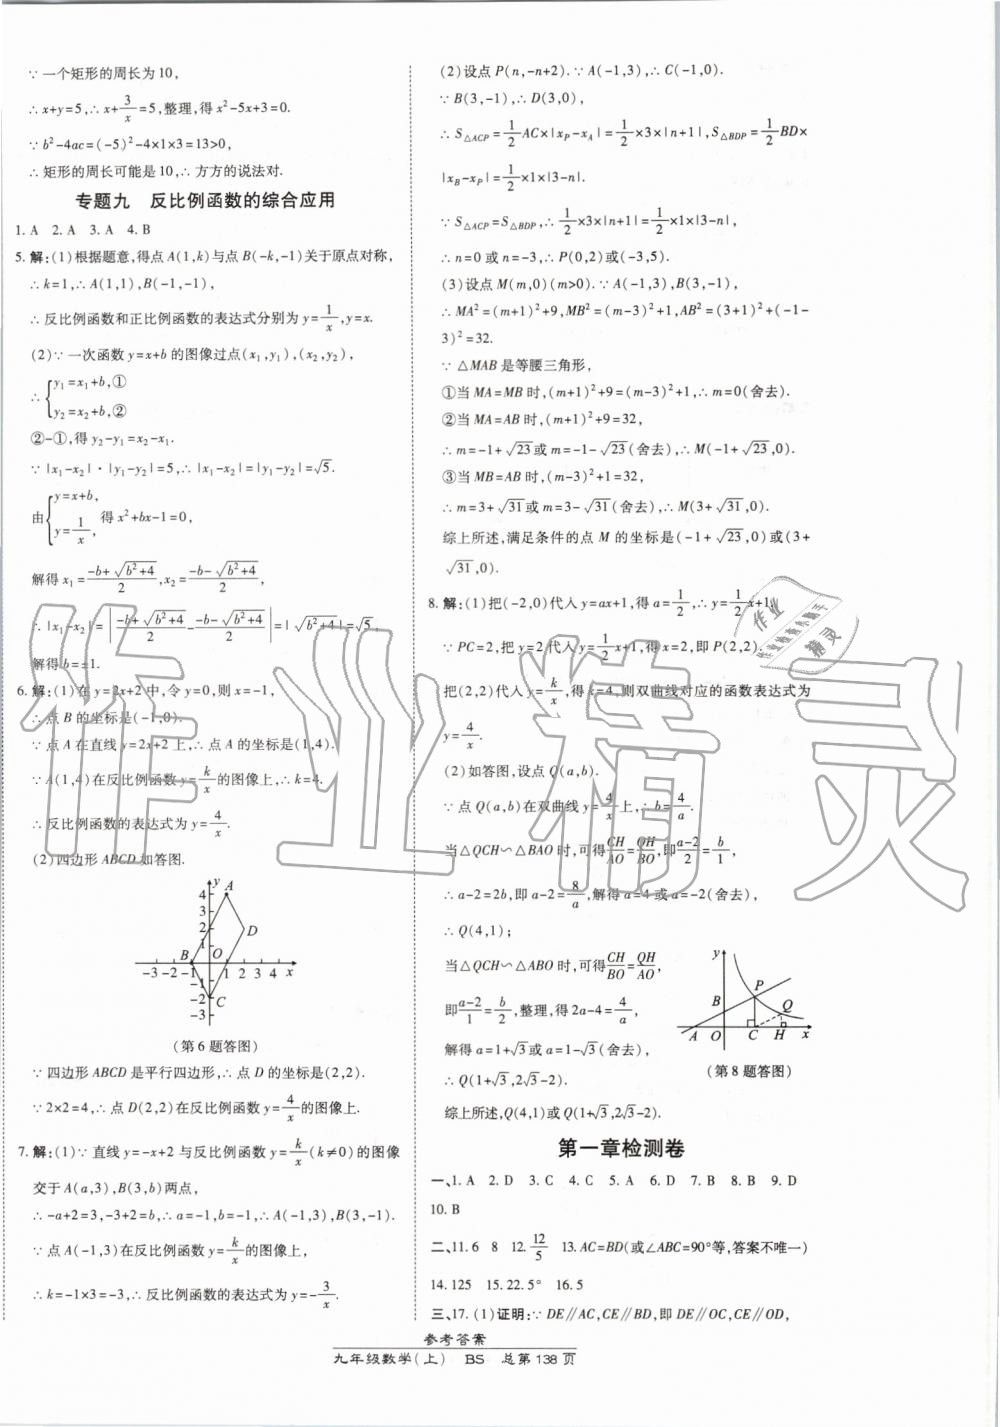 ∵一个矩形的周长为10,
∴x+y=5,∴x+3/x=5,整理,得x²-5x+3=0.
∵b²-4ac=(-5)²-4×1×3=13>0,
∴矩形的周长可能是10,∴方方的说法对.
专题九 反比例函数的综合应用
1. A 2. A 3. A 4. B
5. 解:(1)根据题意,得点A(1,k)与点B(-k,-1)关于原点对称,
∴k=1,∴A(1,1),B(-1,-1),
∴反比例函数和正比例函数的表达式分别为y=1/x,y=x.
(2)∵一次函数y=x+b的图像过点(x₁,y₁),(x₂,y₂),
∴{y₁=x₁+b,①
y₂=x₂+b,②
②-①,得y₂-y₁=x₂-x₁.
∵|x₁-x₂|·|y₁-y₂|=5,∴|x₁-x₂|=|y₁-y₂|=√5.
由{y=x+b, y=1/x, 得x²+bx-1=0,
解得x₁=(-b+√(b²+4))/2,x₂=(-b-√(b²+4))/2,
∴|x₁-x₂|=|(-b+√(b²+4))/2-(-b-√(b²+4))/2|=|√(b²+4)|=√5,
解得b=±1.
6. 解:(1)在y=2x+2中,令y=0,则x=-1,
∴点B的坐标是(-1,0).
∵点A在直线y=2x+2上,∴点A的坐标是(1,4).
∵A(1,4)在反比例函数y=k/x的图像上,∴k=4.
∴反比例函数的表达式为y=4/x.
(2)四边形ABCD如答图.
y A 4 3 2 1 D B O -3 -2 -1 1 2 3 4 5 x -1 -2 C -3
(第6题答图)
∵四边形ABCD是平行四边形,∴点D的坐标是(2,2).
∵2×2=4,∴点D(2,2)在反比例函数y=4/x的图像上.
7. 解:(1)∵直线y=-x+2与反比例函数y=k/x(k≠0)的图像
交于A(a,3),B(3,b)两点,
∴-a+2=3,-3+2=b,∴a=-1,b=-1,∴A(-1,3),B(3,-1).
∵点A(-1,3)在反比例函数y=k/x的图像上,
∴k=-1×3=-3,∴反比例函数的表达式为y=-3/x.
(2)设点P(n,-n+2).∵A(-1,3),∴C(-1,0).
∵B(3,-1),∴D(3,0),
∴S△ACP=1/2AC×|xP-xA|=1/2×3×|n+1|,S△BDP=1/2BD×
|xB-xP|=1/2×1×|3-n|.
∵S△ACP=S△BDP,∴1/2×3×|n+1|=1/2×1×|3-n|,
∴n=0或n=-3,∴P(0,2)或(-3,5).
(3)设点M(m,0)(m>0).∵A(-1,3),B(3,-1),
∴MA²=(m+1)²+9,MB²=(m-3)²+1,AB²=(3+1)²+(-1-
3)²=32.
∵△MAB是等腰三角形,
①当MA=MB时,(m+1)²+9=(m-3)²+1,∴m=0(舍去).
②当MA=AB时,(m+1)²+9=32,
∴m=-1+√23或m=-1-√23(舍去),∴M(-1+√23,0).
③当MB=AB时,(m-3)²+1=32,
∴m=3+√31或m=3-√31(舍去),∴M(3+√31,0).
综上所述,满足条件的点M的坐标是(-1+√23,0)或(3+
√31,0).
8. 解:(1)把(-2,0)代入y=ax+1,得a=1/2,∴y=1/2x+1.
∵PC=2,把y=2代入y=1/2x+1,得x=2,即P(2,2).
把(2,2)代入y=k/x,得k=4,则双曲线对应的函数表达式为
y=4/x.
(2)如答图,设点Q(a,b).
∵点Q(a,b)在双曲线y=4/x上,∴b=4/a.
当△QCH∽△BAO时,可得CH/AO=QH/BO,即(a-2)/2=b/1,
∴a-2=2b,即a-2=8/a,解得a=4或a=-2(舍去),
∴Q(4,1);
当△QCH∽△ABO时,可得CH/BO=QH/AO,
即(a-2)/1=b/2,整理,得2a-4=4/a,
解得a=1+√3或a=1-√3(舍去),
∴Q(1+√3,2√3-2).
综上所述,Q(4,1)或Q(1+√3,2√3-2).
y P B Q A O C H x
(第8题答图)
第一章检测卷
一、1. A 2. D 3. C 4. C 5. A 6. D 7. B 8. B 9. D
10. B
二、11. 6 8 12. 12/5 13. AC=BD(或∠ABC=90°等,答案不唯一)
14. 125 15. 22.5° 16. 5
三、17. (1)证明:∵DE∥AC,CE∥BD,即DE∥OC,CE∥OD,
参考答案
九年级数学(上) BS 总第138页
作业精灵
作业
精灵